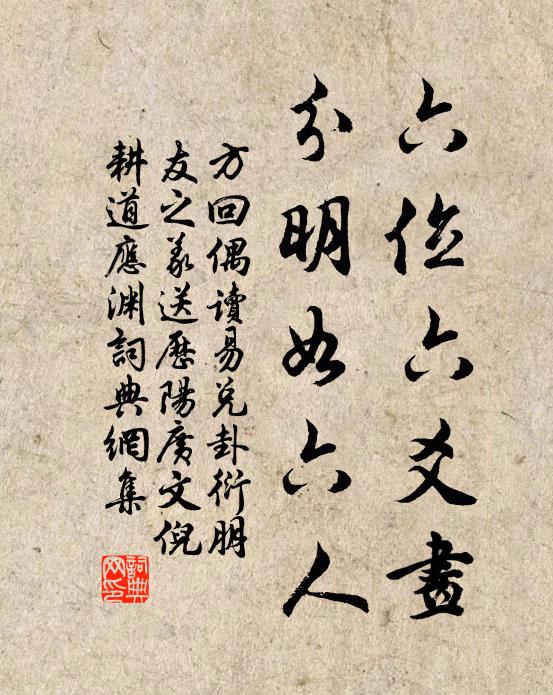 六位六爻畫
分明如六人
方回偶讀易兌卦衍朋
友之義送歷陽廣文倪
耕道應淵詞典網集
詞典网印